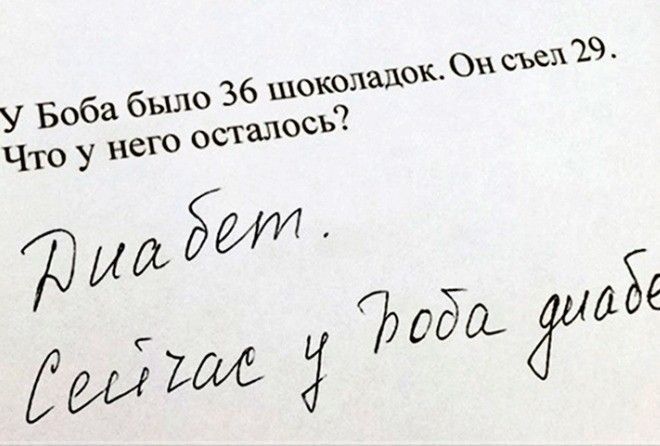 У Боба было 36 шоколадок. Он съел 29.
Что у него осталось?
Диабет.
Сейчас у Боба диабе